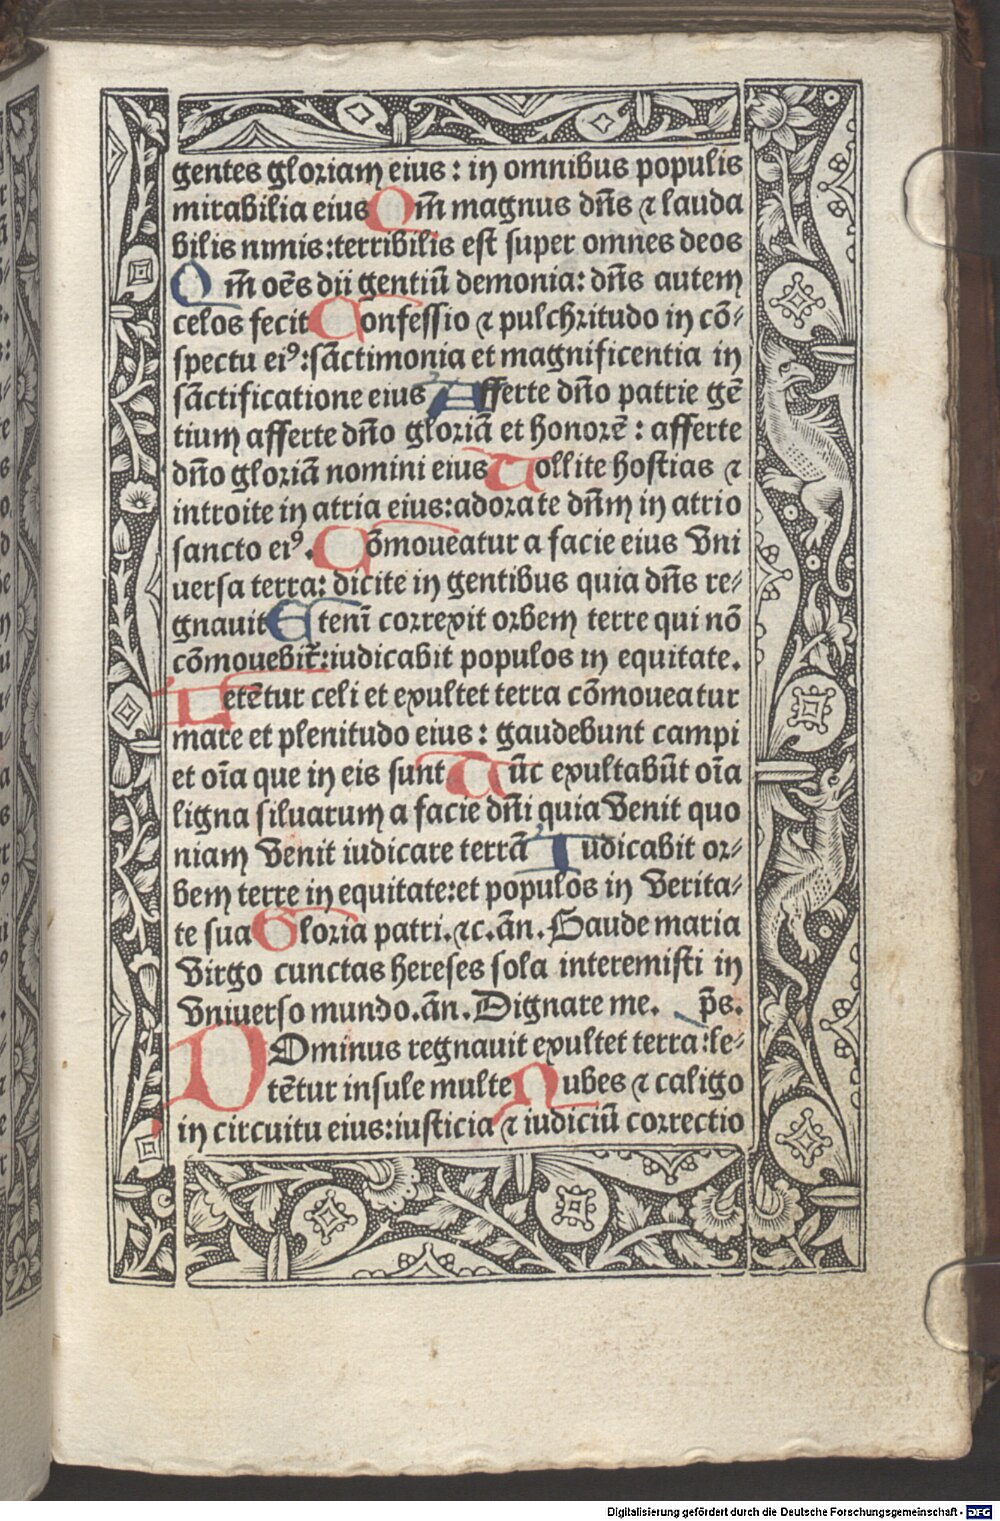 gentes gloriam eius : in omnibus populis
mirabilia eius Qm̄ magnus dn̄s ⁊ lauda
bilis nimis:terribilis est super omnes deos
Qm̄ oēs dii gentiū demonia: dn̄s autem
celos fecit Confessio ⁊ pulchritudo in cō⸗
spectu ei⁹:sāctimonia et magnificentia in
sāctificatione eius Afferte dn̄o patrie gē
tium afferte dn̄o gloriā et honorē : afferte
dn̄o gloriā nomini eius Tollite hostias ⁊
introite in atria eius:adorate dn̄m in atrio
sancto ei⁹. Cōmoueatur a facie eius vni
uersa terra: dicite in gentibus quia dn̄s re⸗
gnauit Etenī correxit orbem terre qui nō
cōmouebit̄:iudicabit populos in equitate.
Letētur celi et exultet terra cōmoueatur
mare et plenitudo eius : gaudebunt campi
et oīa que in eis sunt Tūc exultabūt oīa
ligna siluarum a facie dn̄i quia venit quo
niam venit iudicare terrā Iudicabit or⸗
bem terre in equitate:et populos in verita⸗
te sua Gloria patri.⁊c.an̄. Gaude maria
virgo cunctas hereses sola interemisti in
vniuerso mundo.an̄. Dignare me. p̄s.
DOminus regnauit exultet terra:le⸗
tētur insule multe Nubes ⁊ caligo
in circuitu eius:iusticia ⁊ iudiciū correctio
Digitalisierung gefördert durch die Deutsche Forschungsgemeinschaft - DFG